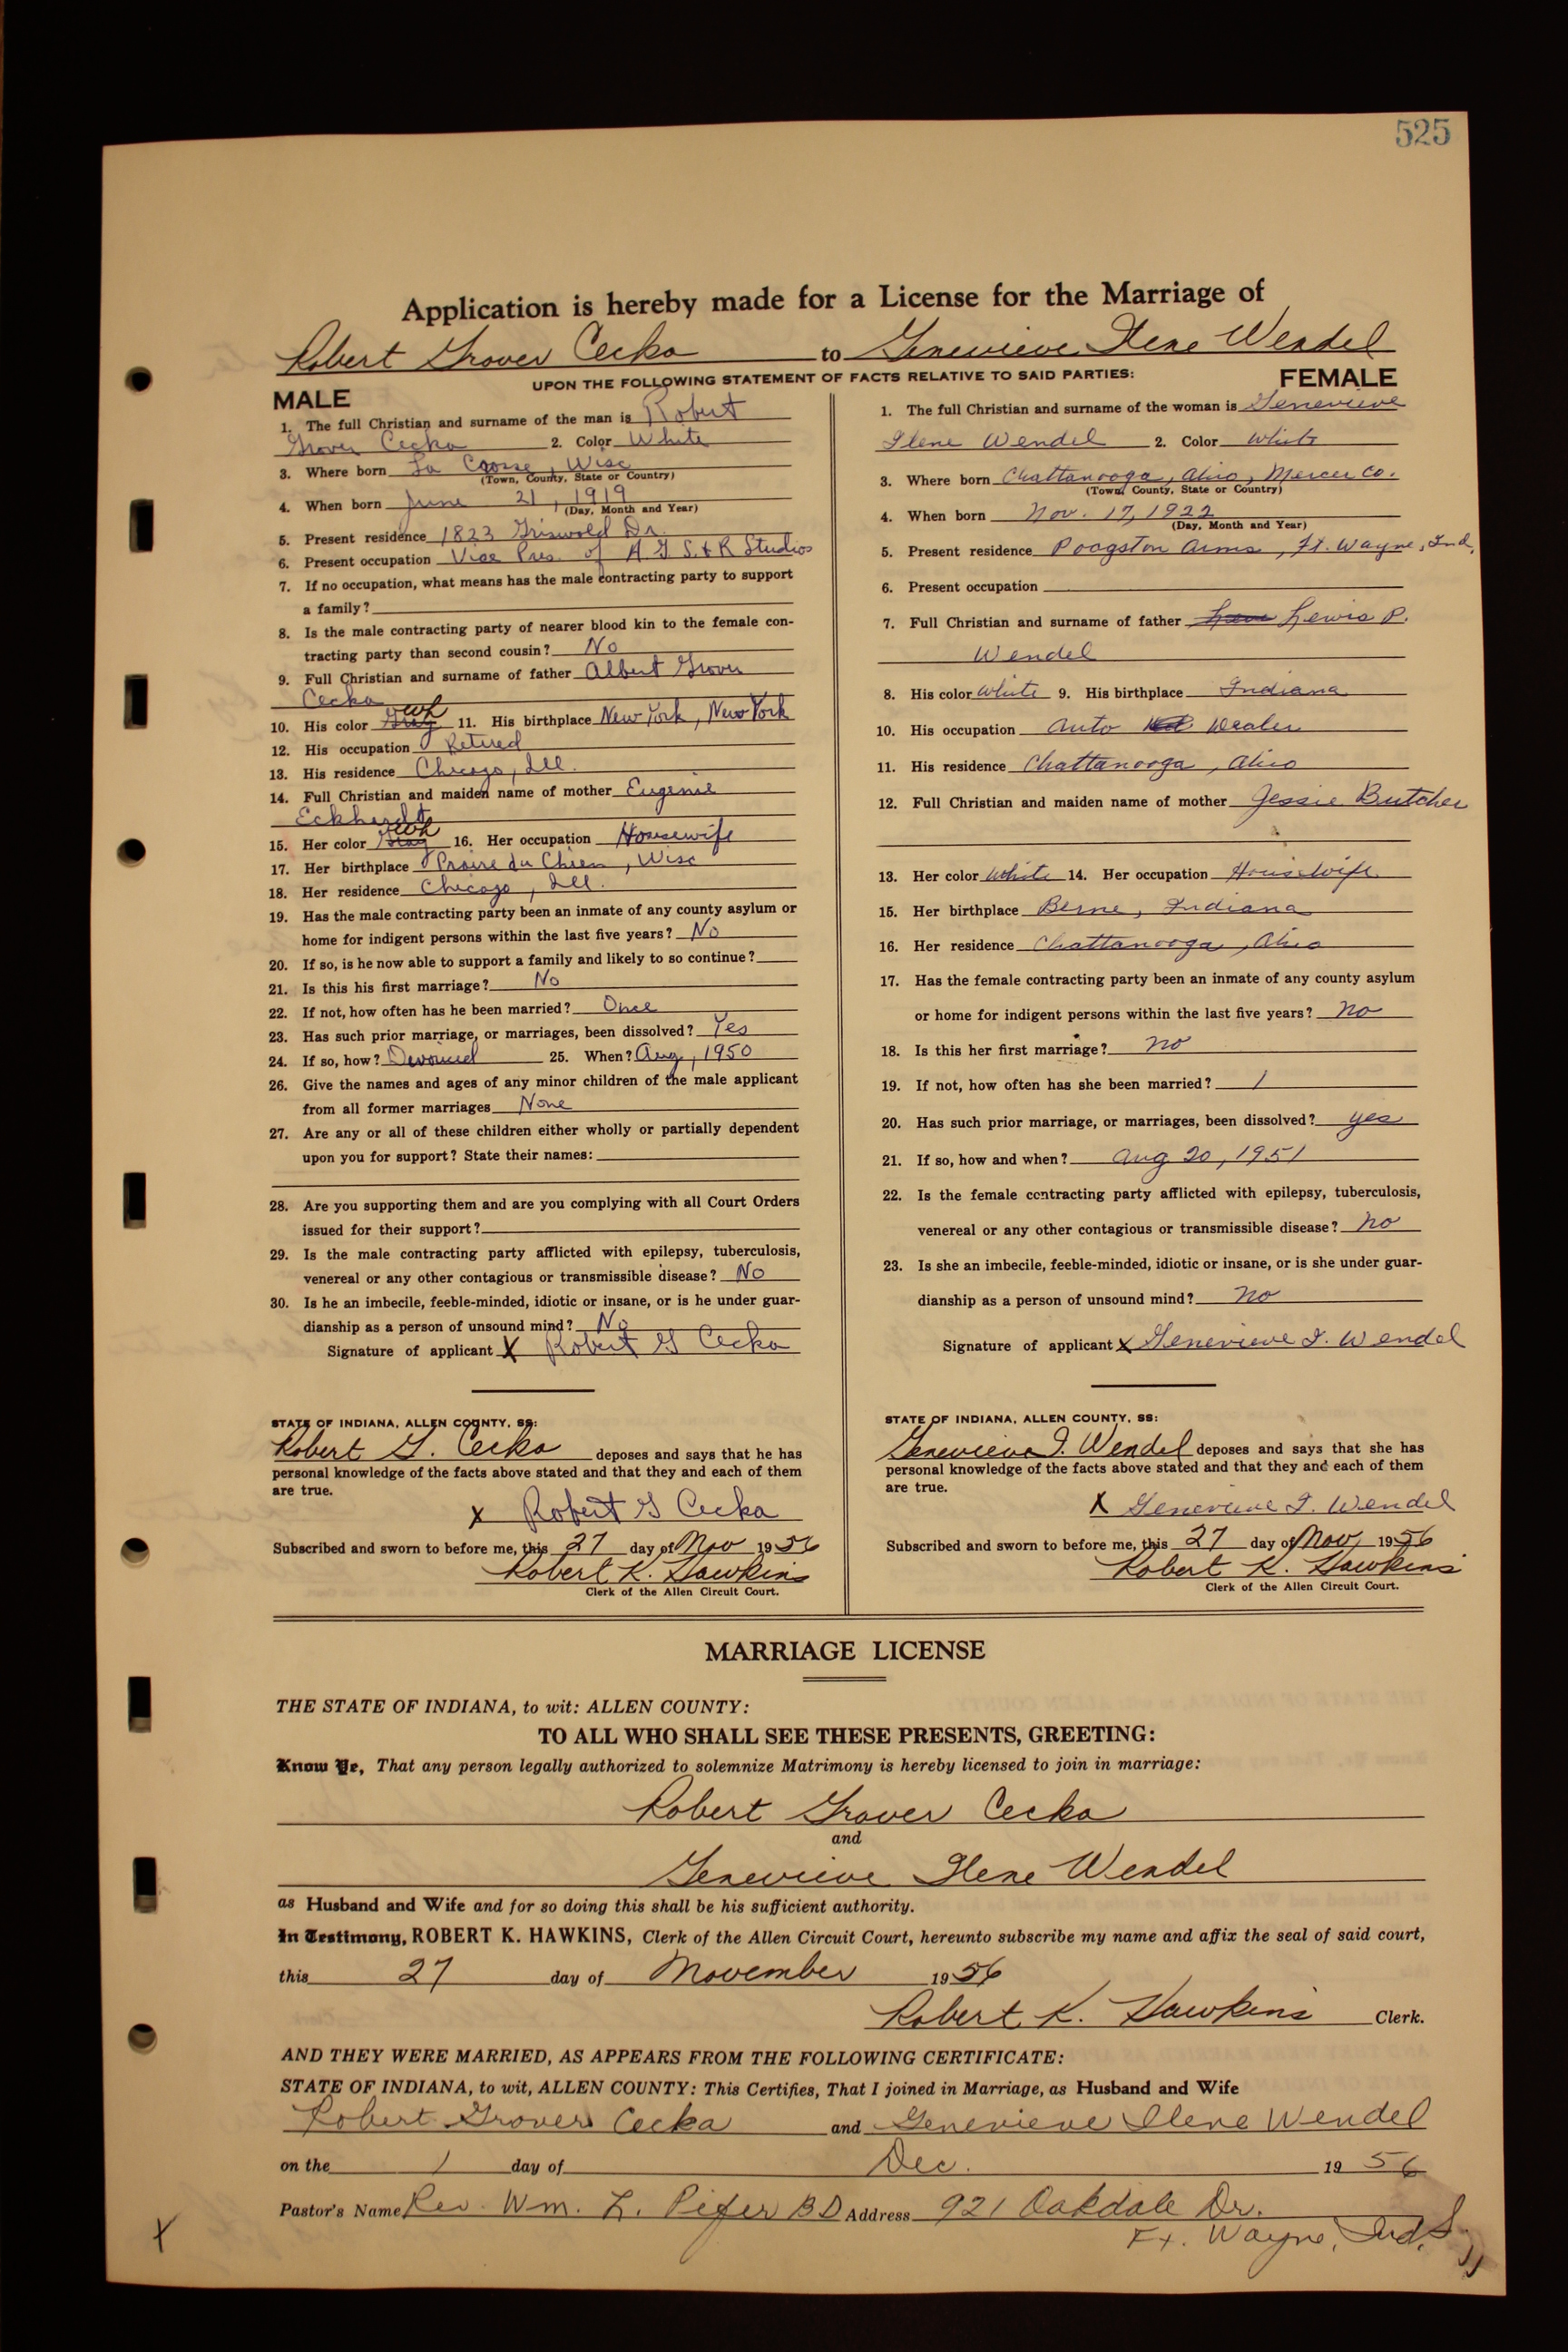 525
Application is hereby made for a License for the Marriage of
Robert Grover Cecka to Genevieve Ilene Wendel
UPON THE FOLLOWING STATEMENT OF FACTS RELATIVE TO SAID PARTIES:
MALE
1. The full Christian and surname of the man is Robert
Grover Cecka 2. Color White
3. Where born La Crosse, Wisc
(Town, County, State or Country)
4. When born June 21, 1919
(Day, Month and Year)
5. Present residence 1823 Griswold Dr.
6. Present occupation Vice Pres. of H G S & R Studios
7. If no occupation, what means has the male contracting party to support
a family?
8. Is the male contracting party of nearer blood kin to the female con-
tracting party than second cousin? No
9. Full Christian and surname of father Albert Grover
Cecka
10. His color wh 11. His birthplace New York, New York
12. His occupation Retired
13. His residence Chicago, Ill.
14. Full Christian and maiden name of mother Eugenie
Eckhardt
15. Her color wh 16. Her occupation Housewife
17. Her birthplace Praire du Chien, Wisc
18. Her residence Chicago, Ill.
19. Has the male contracting party been an inmate of any county asylum or
home for indigent persons within the last five years? No
20. If so, is he now able to support a family and likely to so continue?
21. Is this his first marriage? No
22. If not, how often has he been married? Once
23. Has such prior marriage, or marriages, been dissolved? Yes
24. If so, how? Devorced 25. When? Aug, 1950
26. Give the names and ages of any minor children of the male applicant
from all former marriages None
27. Are any or all of these children either wholly or partially dependent
upon you for support? State their names:
28. Are you supporting them and are you complying with all Court Orders
issued for their support?
29. Is the male contracting party afflicted with epilepsy, tuberculosis,
venereal or any other contagious or transmissible disease? No
30. Is he an imbecile, feeble-minded, idiotic or insane, or is he under guar-
dianship as a person of unsound mind? No
Signature of applicant X Robert G Cecka
STATE OF INDIANA, ALLEN COUNTY, SS:
Robert G. Cecka deposes and says that he has
personal knowledge of the facts above stated and that they and each of them
are true.
x Robert G Cecka
Subscribed and sworn to before me, this 27 day of Nov 1956
Robert K. Hawkins
Clerk of the Allen Circuit Court.
FEMALE
1. The full Christian and surname of the woman is Genevieve
Ilene Wendel 2. Color White
3. Where born Chattanooga, Ohio, Mercer Co.
(Town, County, State or Country)
4. When born Nov. 17, 1922
(Day, Month and Year)
5. Present residence Poagston Arms, Ft. Wayne, Ind.
6. Present occupation
7. Full Christian and surname of father Lewis P.
Wendel
8. His color White 9. His birthplace Indiana
10. His occupation Auto Dealer
11. His residence Chattanooga, Ohio
12. Full Christian and maiden name of mother Jessie Butcher
13. Her color White 14. Her occupation Housewife
15. Her birthplace Berne, Indiana
16. Her residence Chattanooga, Ohio
17. Has the female contracting party been an inmate of any county asylum
or home for indigent persons within the last five years? No
18. Is this her first marriage? No
19. If not, how often has she been married? 1
20. Has such prior marriage, or marriages, been dissolved? yes
21. If so, how and when? Aug 20, 1951
22. Is the female contracting party afflicted with epilepsy, tuberculosis,
venereal or any other contagious or transmissible disease? No
23. Is she an imbecile, feeble-minded, idiotic or insane, or is she under guar-
dianship as a person of unsound mind? No
Signature of applicant X Genevieve I. Wendel
STATE OF INDIANA, ALLEN COUNTY, SS:
Genevieve I. Wendel deposes and says that she has
personal knowledge of the facts above stated and that they and each of them
are true.
X Genevieve I. Wendel
Subscribed and sworn to before me, this 27 day of Nov, 1956
Robert K. Hawkins
Clerk of the Allen Circuit Court.
MARRIAGE LICENSE
THE STATE OF INDIANA, to wit: ALLEN COUNTY:
TO ALL WHO SHALL SEE THESE PRESENTS, GREETING:
Know Ye, That any person legally authorized to solemnize Matrimony is hereby licensed to join in marriage:
Robert Grover Cecka
and
Genevieve Ilene Wendel
as Husband and Wife and for so doing this shall be his sufficient authority.
In Testimony, ROBERT K. HAWKINS, Clerk of the Allen Circuit Court, hereunto subscribe my name and affix the seal of said court,
this 27 day of November 1956
Robert K. Hawkins Clerk.
AND THEY WERE MARRIED, AS APPEARS FROM THE FOLLOWING CERTIFICATE:
STATE OF INDIANA, to wit, ALLEN COUNTY: This Certifies, That I joined in Marriage, as Husband and Wife
Robert Grover Cecka and Genevieve Ilene Wendel
on the 1 day of Dec. 1956
Pastor's Name Rev. Wm. L. Pifer BD Address 921 Oakdale Dr.
Ft. Wayne, Ind.
X